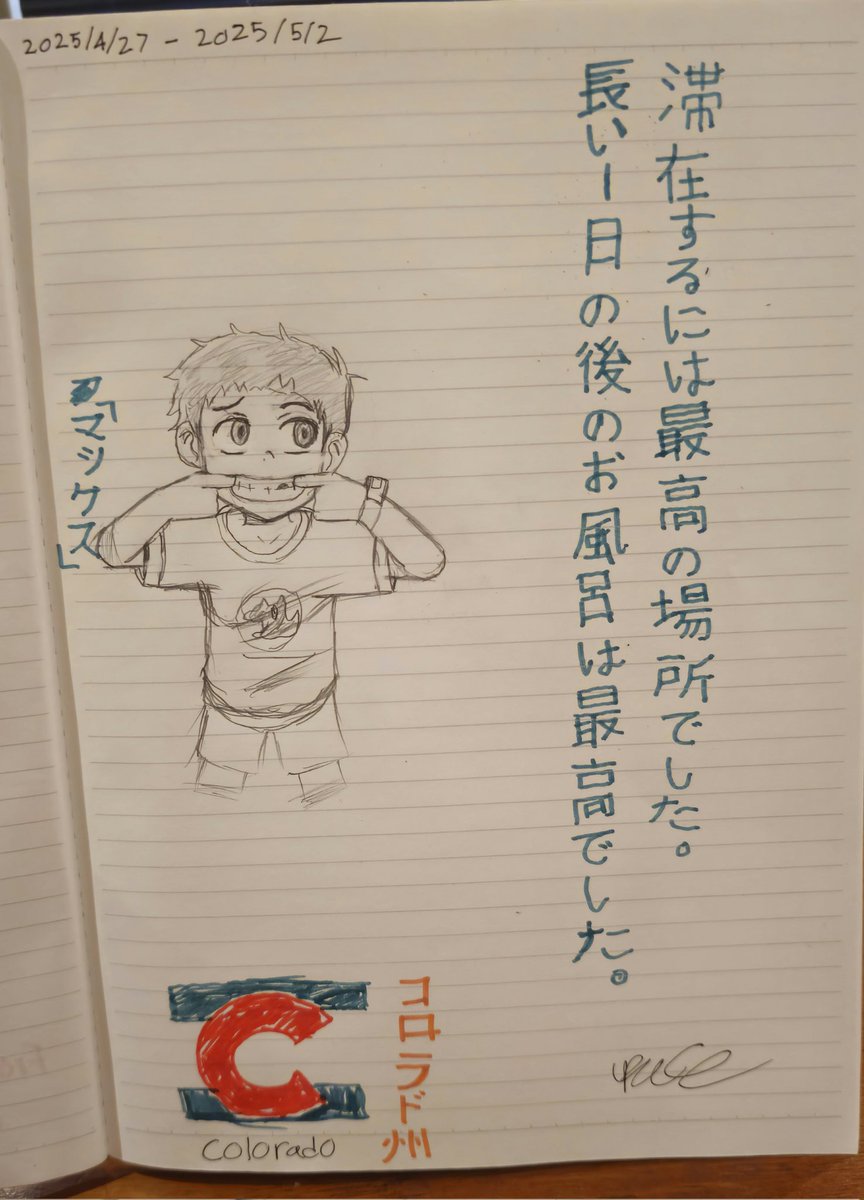 2025/4/27 - 2025/5/2
滞在するには最高の場所でした。
長い一日の後のお風呂は最高でした。
「マックス」
コロラド州
colorado